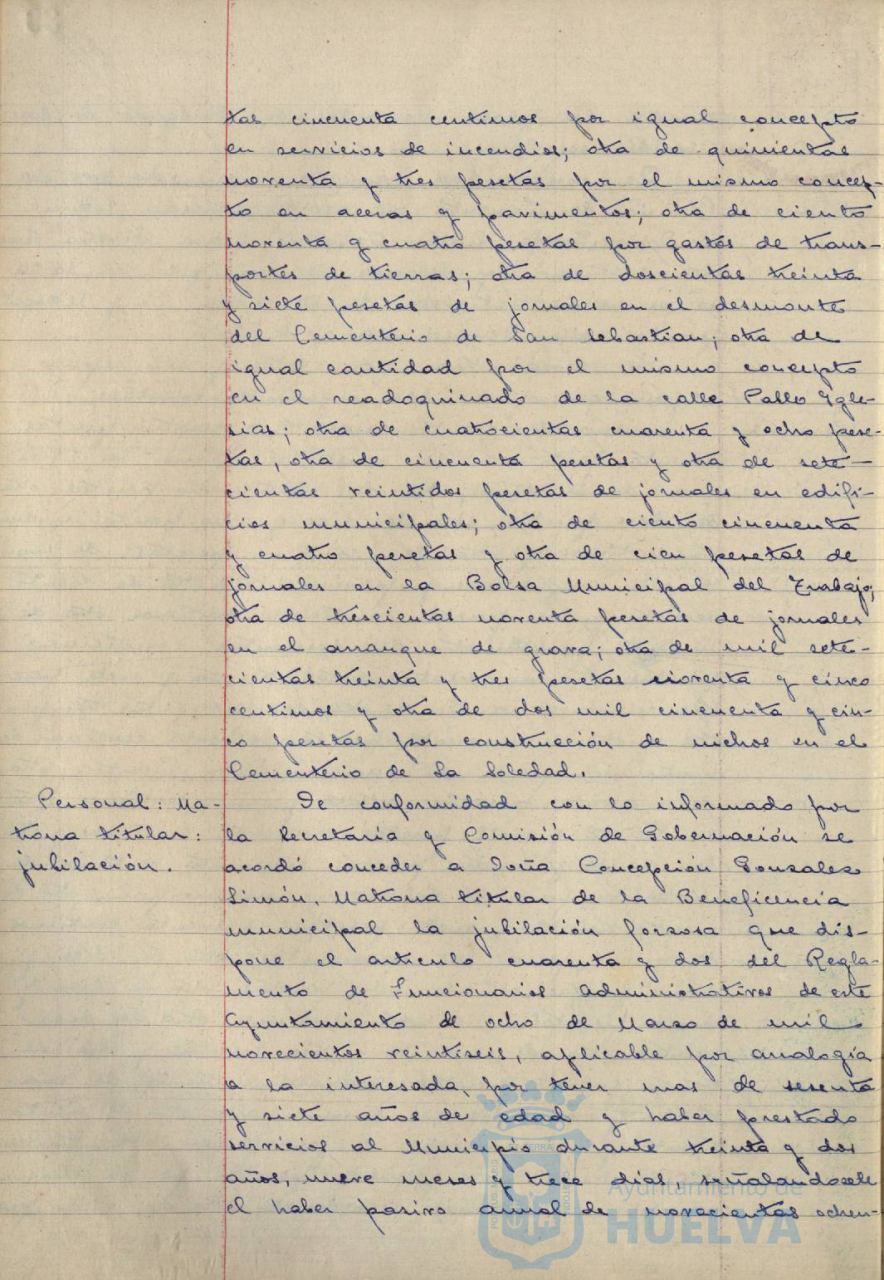 tas cincuenta centimos por igual concepto
en servicios de incendios; otra de quinientas
noventa y tres pesetas por el mismo concep-
to en aceras y pavimentos; otra de ciento
noventa y cuatro pesetas por gastos de trans-
portes de tierras; otra de doscientas treinta
y siete pesetas de jornales en el desmonte
del Cementerio de San Sebastian; otra de
igual cantidad por el mismo concepto
en el readoquinado de la calle Pablo Igle-
sias; otra de cuatrocientas cuarenta y ocho pese-
tas, otra de cincuenta pesetas y otra de sete-
cientas veintidos pesetas de jornales en edifi-
cios municipales; otra de ciento cincuenta
y cuatro pesetas y otra de cien pesetas de
jornales en la Bolsa Municipal del Trabajo;
otra de trescientas noventa pesetas de jornales
en el arranque de grava; otra de mil sete-
cientas treinta y tres pesetas noventa y cinco
centimos y otra de dos mil cincuenta y cin-
co pesetas por construcción de nichos en el
Cementerio de la Soledad.
Personal: Ma-
trona titular:
jubilación.
De conformidad con lo informado por
la Secretaria y Comisión de Gobernación se
acordó conceder a Doña Concepción Gonzalez
Simón, Matrona titular de la Beneficencia
municipal la jubilación forzosa que dis-
pone el articulo cuarenta y dos del Regla-
mento de Funcionarios administrativos de este
Ayuntamiento de ocho de Marzo de mil
novecientos veintiseis, aplicable por analogía
a la interesada, por tener mas de sesenta
y siete años de edad y haber prestado
servicios al Municipio durante treinta y dos
años, nueve meses y trece dias, señalandosele
el haber pasivo anual de novecientas ochen-
Ayuntamiento de
HUELVA